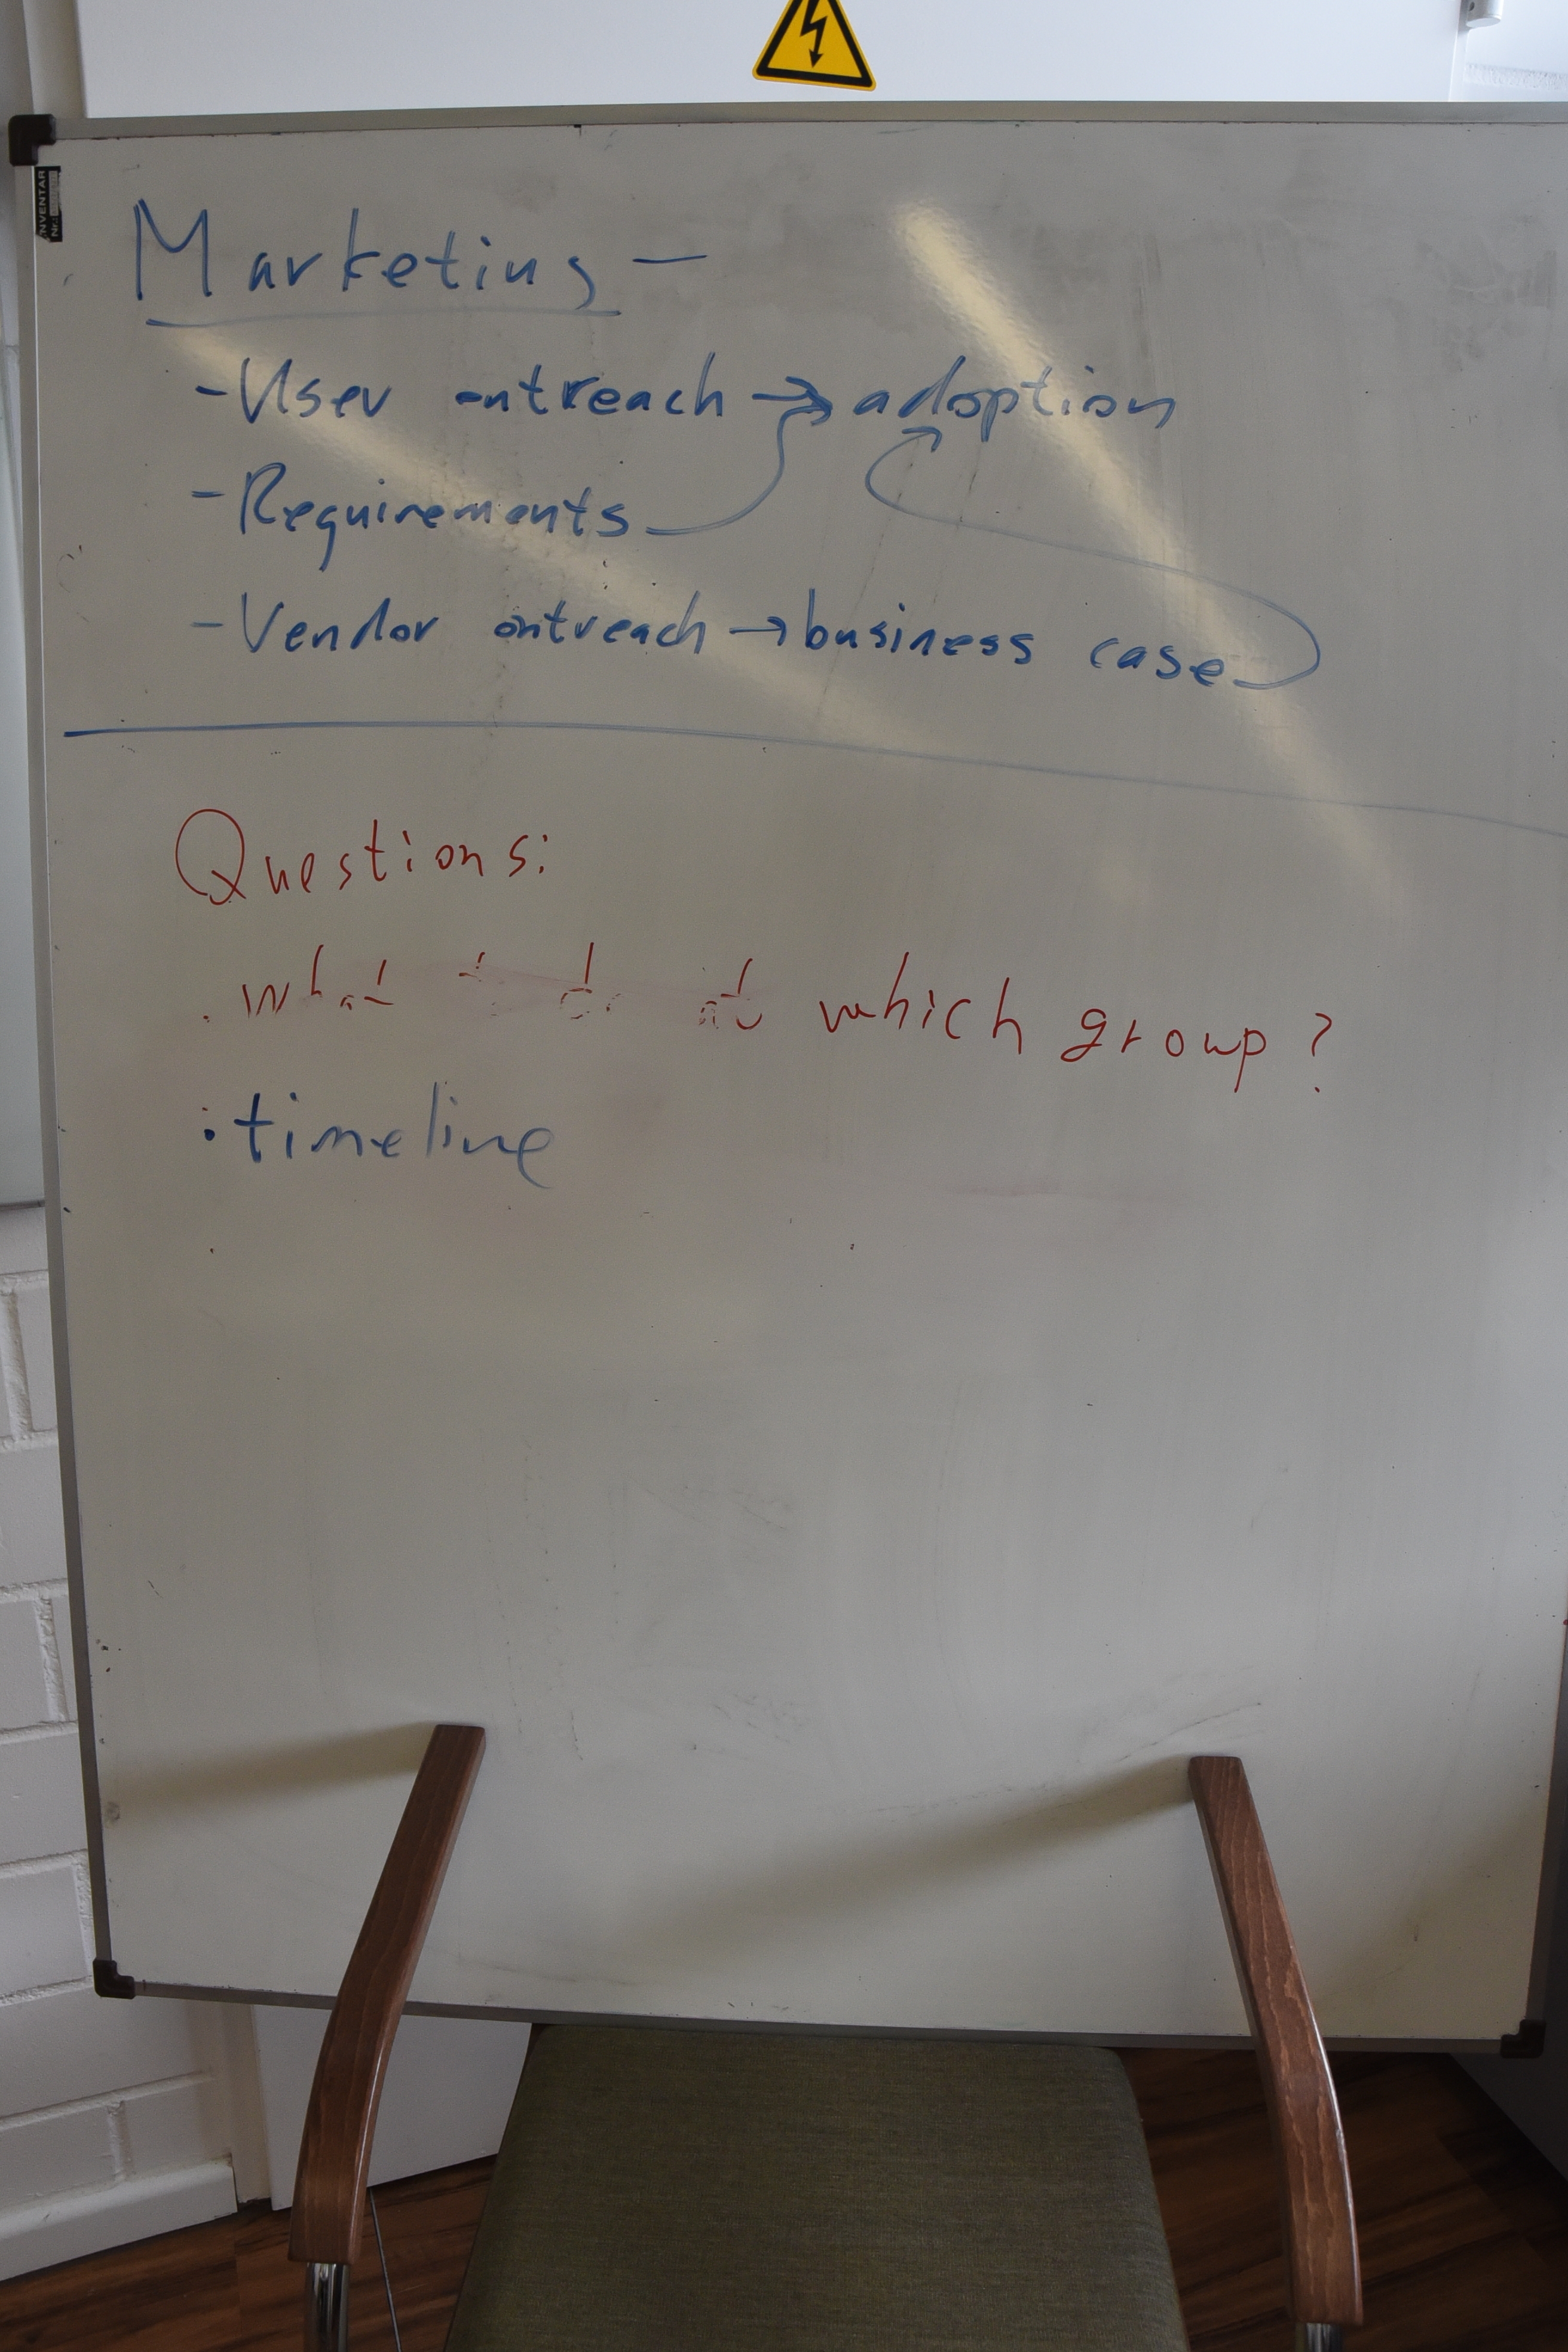 INVENTAR
Nr.:
Marketing —
- User outreach → adoption
- Requirements
- Vendor outreach → business case
Questions:
. what to do at which group?
: timeline